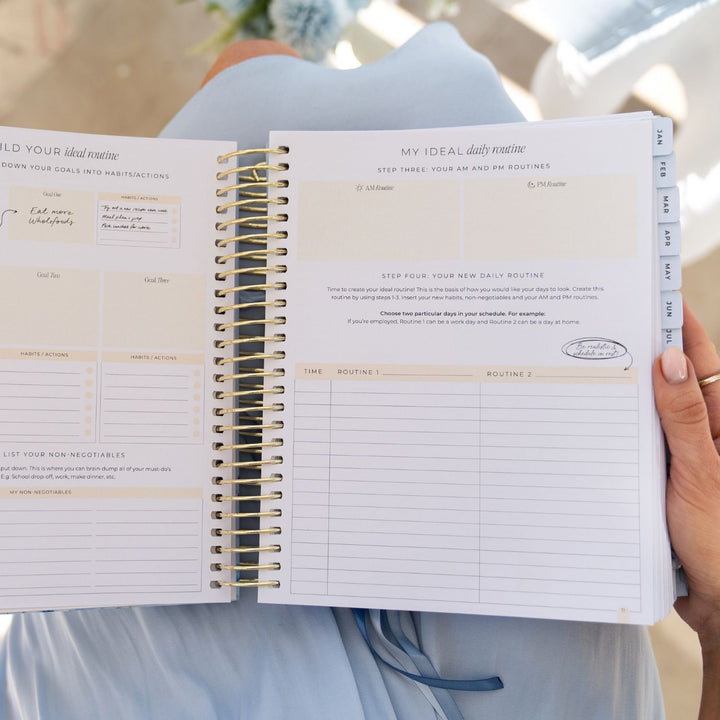 ILD YOUR ideal routine
DOWN YOUR GOALS INTO HABITS/ACTIONS
Goal One
Eat more
Wholefoods
HABITS / ACTIONS
Try out a new recipe each week
Meal plan & prep
Pack lunches for work
Goal Two
Goal Three
HABITS / ACTIONS
HABITS / ACTIONS
LIST YOUR NON-NEGOTIABLES
put down. This is where you can brain-dump all of your must-do's
E.g. School drop off, work, make dinner, etc.
MY NON-NEGOTIABLES
MY IDEAL daily routine
STEP THREE: YOUR AM AND PM ROUTINES
AM Routine
PM Routine
STEP FOUR: YOUR NEW DAILY ROUTINE
Time to create your ideal routine! This is the basis of how you would like your days to look. Create this
routine by using steps 1-3. Insert your new habits, non-negotiables and your AM and PM routines.
Choose two particular days in your schedule. For example:
If you're employed, Routine 1 can be a work day and Routine 2 can be a day at home.
Be realistic &
schedule in rest!
TIME ROUTINE 1 ROUTINE 2
JAN
FEB
MAR
APR
MAY
JUN
JUL